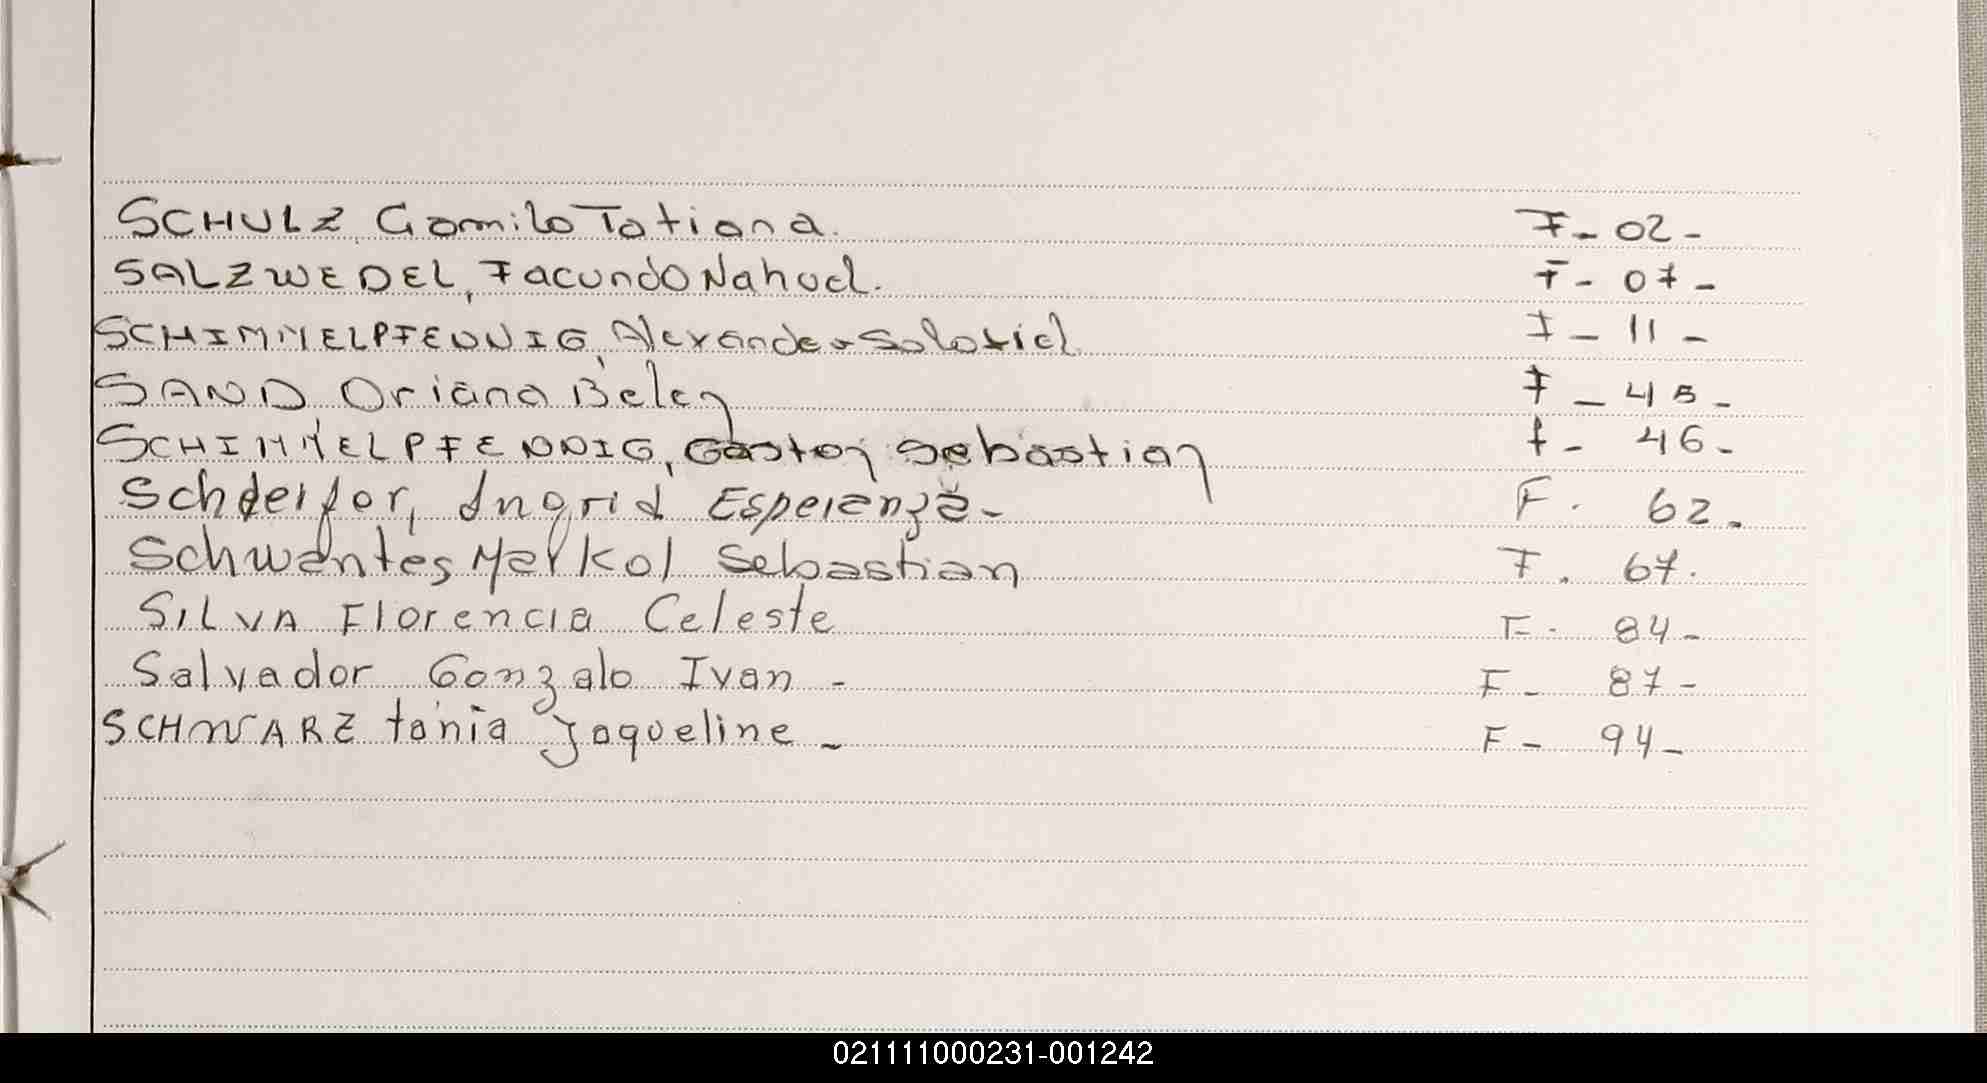 SCHULZ, Gamilo Tatiana. F - 02 -
SALZWEDEL, Facundo Nahuel. F - 07 -
SCHIMMELPFENNIG, Alexander Salatiel F - 11 -
SAND, Oriana Belen F - 45 -
SCHIMMELPFENNIG, Gaston Sebastian F - 46 -
Schdeifer, Ingrid Esperanza - F. 62.
Schwantes Markol Sebastian F. 67.
SILVA Florencia Celeste F. 84 -
Salvador Gonzalo Ivan - F - 87 -
SCHWARZ tania Jaqueline - F - 94 -
021111000231-001242